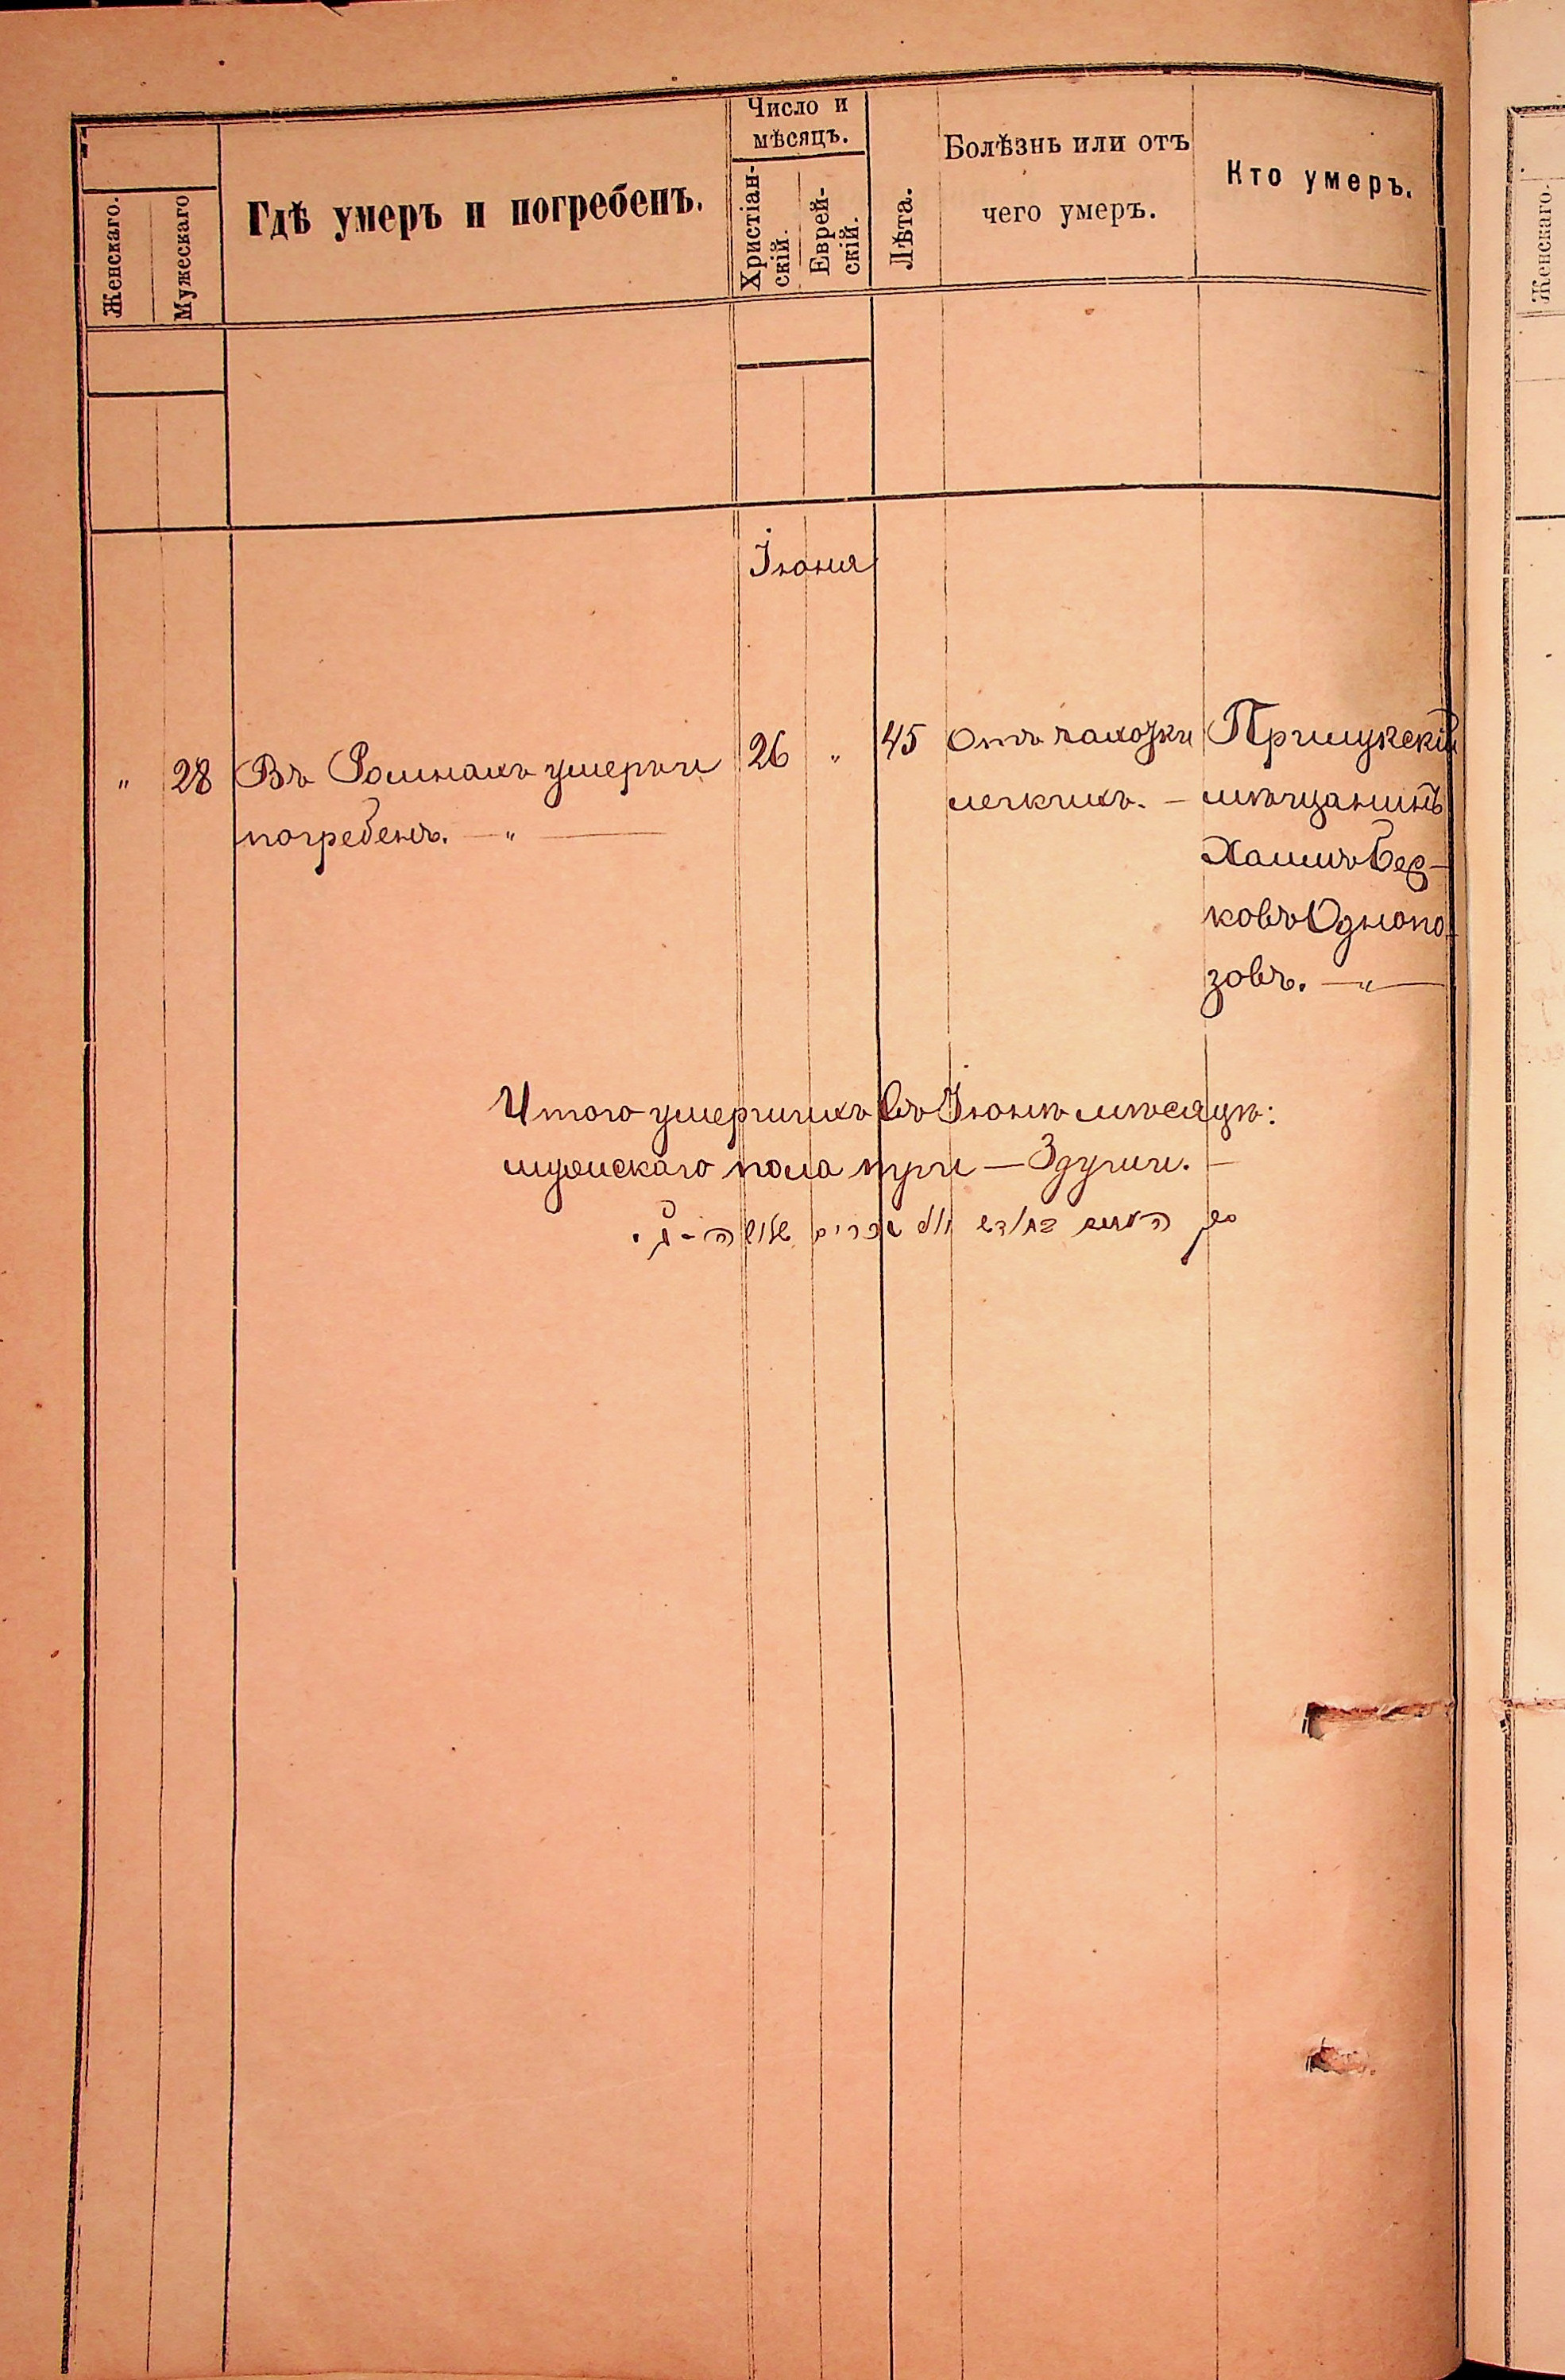 Женскаго.
Мужескаго
Гдѣ умеръ и погребенъ.
Число и
мѣсяцъ.
Христіан-
скій.
Еврей-
скій.
Лѣта.
Болѣзнь или отъ
чего умеръ.
Кто умеръ.
Іюня
„ 28 Въ Ромнахъ умеръ и 26 „ 45 Отъ чахотки Прилукскій
погребенъ. — „ — легкихъ. — мѣщанинъ
Хаимъ Бер-
ковъ Однопо-
зовъ. — „ —
Итого умершихъ въ Іюнѣ мѣсяцѣ:
мужскаго пола три — 3 души. —
סך
זכרים
Женскаго.